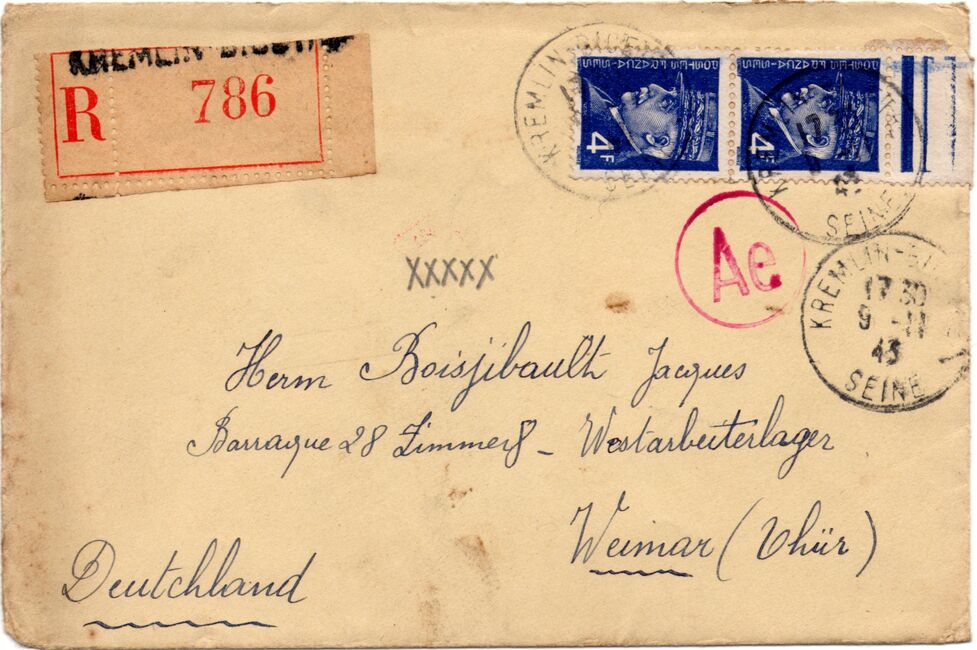 KREMLIN-BICÊTRE
R 786
KREMLIN-BICÊTRE
SEINE
POSTES FRANÇAISES
4F
POSTES FRANÇAISES
4F
17
SEINE
Ae
XXXXX
KREMLIN-BICÊTRE
17 30
9 - 11
43
SEINE
Herrn Boisjibault Jacques
Barraque 28 Zimmer 8 - Westarbeiterlager
Weimar (Thür)
Deutchland